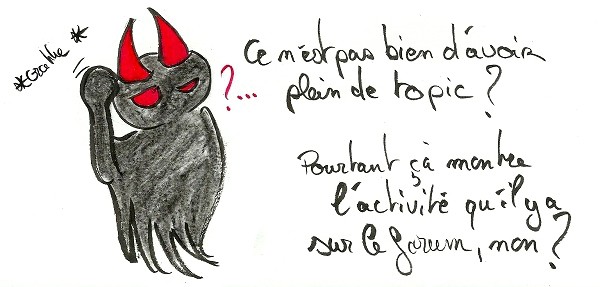 *Gratte*
?...
Ce n'est pas bien d'avoir
plein de topic ?
Pourtant çà montre
l'activité qu'il y a
sur le forum, non ?